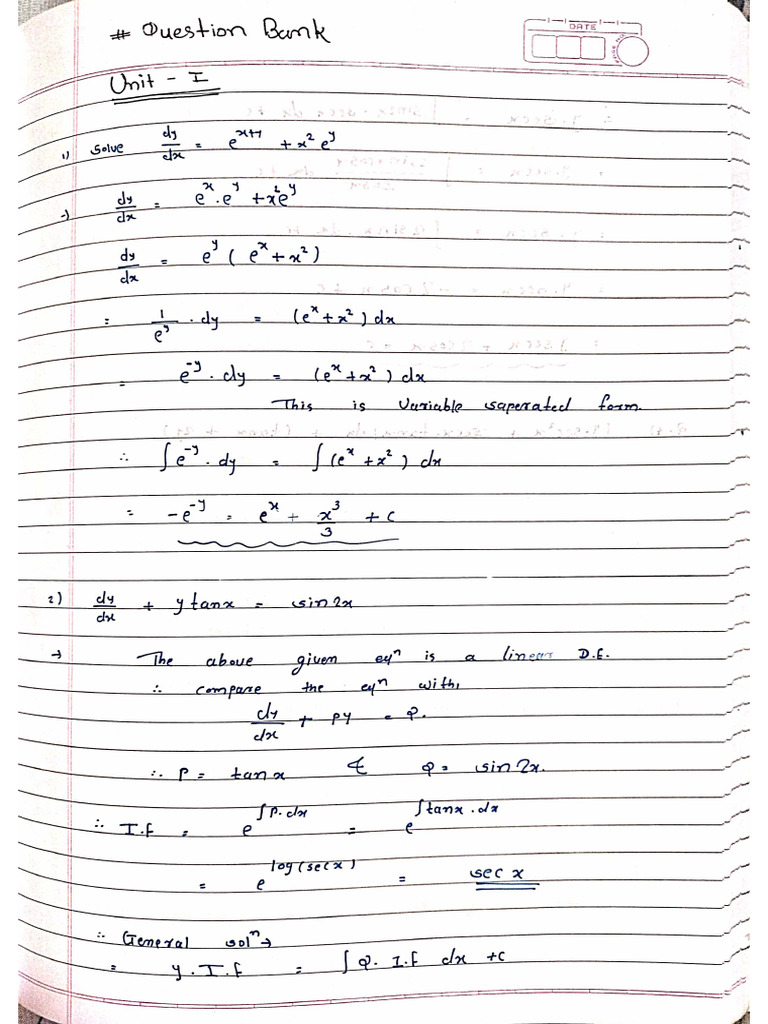 # Question Bank
DATE
Unit - I
1) Solve dy/dx = e^(x+y) + x² e^y
→ dy/dx = e^x . e^y + x² e^y
dy/dx = e^y ( e^x + x² )
= 1/e^y . dy = (e^x + x²) dx
= e^-y . dy = (e^x + x²) dx
This is variable saperated form.
∴ ∫ e^-y . dy = ∫ (e^x + x²) dx
= -e^-y = e^x + x³/3 + c
2) dy/dx + y tanx = sin 2x
→ The above given eqⁿ is a linear D.E.
∴ compare the eqⁿ with,
dy/dx + py = Q.
∴ P = tanx & Q = sin 2x.
∴ I.F = e^∫P.dx = e^∫tanx.dx
= e^log(secx) = sec x
∴ General solⁿ →
= y . I.F = ∫ Q . I.F dx + c